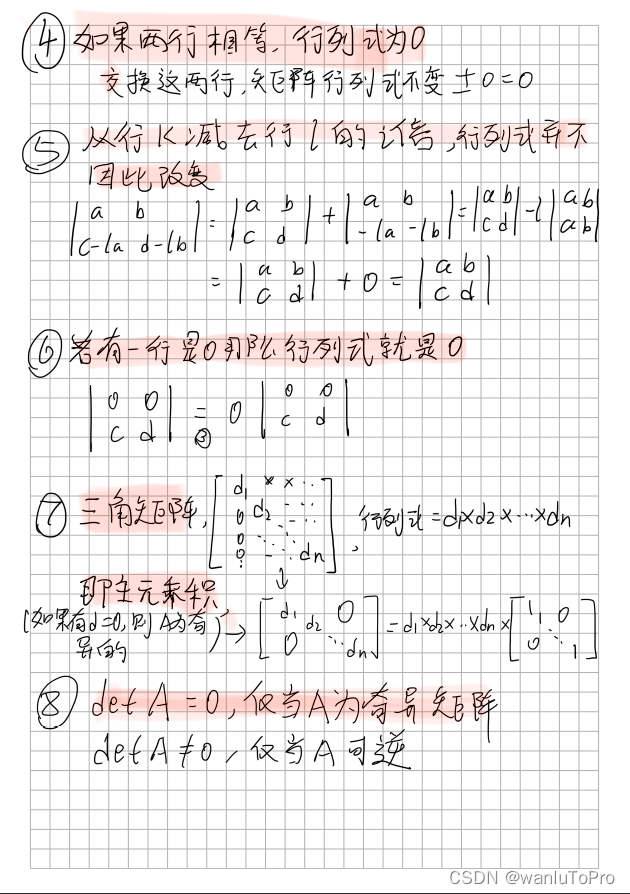 ④ 如果两行相等, 行列式为0
交换这两行, 矩阵行列式不变 ±0=0
⑤ 从行k减去行l的i倍, 行列式并不
因此改变
|a b; c-la d-lb| = |a b; c d| + |a b; -la -lb| = |a b; c d| - l|a b; a b|
= |a b; c d| + 0 = |a b; c d|
⑥ 若有一行是0那么行列式就是0
|0 0; c d| =③ 0 |0 0; c d|
⑦ 三角矩阵, [d1 × × ··; 0 d2 - ··; 0 ···; 0 - ·· dn], 行列式=d1×d2×···×dn
即主元乘积 ↓
(如果有d=0, 则A为奇异的) → [d1 0; d2; 0 ·· dn] = d1×d2×··×dn×[1 1 0; 0 ·· 1]
⑧ det A = 0, 仅当A为奇异矩阵
det A ≠ 0, 仅当A可逆
CSDN @wanluToPro